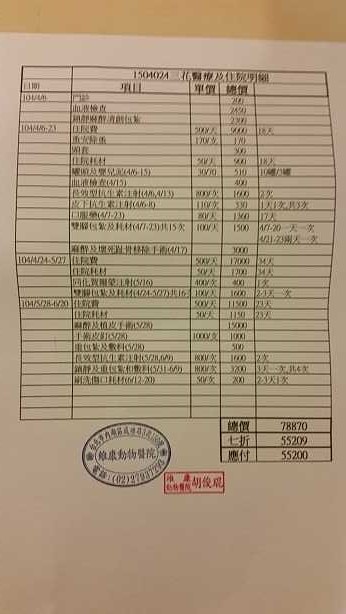 1504024三花醫療及住院明細
日期 項目 單價 總價
104/4/6 門診 200
血液檢查 2450
鎮靜麻醉清創包紮 2300
104/4/6-23 住院費 500/天 9000 18天
重安除蚤 170/次 170
頸套 300
住院耗材 50/天 900 18天
罐頭及嬰兒泥(4/6-15) 30/70 510 10罐/3罐
血液檢查(4/15) 400
長效型抗生素注射(4/6,4/13) 800/次 1600 2次
皮下抗生素注射(4/6-8) 110/次 330 1天1次,共3次
口服藥(4/7-23) 80/天 1360 17天
雙腳包紮及耗材(4/7-23)共15次 100/天 1500 4/7-20一天一次
4/21-23兩天一次
麻醉及壞死趾骨移除手術(4/17) 3000
104/4/24-5/27 住院費 500/天 17000 34天
住院耗材 50/天 1700 34天
同化賀爾蒙注射(5/16) 400/次 400 1次
雙腳包紮及耗材(4/24-5/27)共16 100/次 1600 2-3天一次
104/5/28-6/20 住院費 500/天 11500 23天
住院耗材 50/天 1150 23天
麻醉及植皮手術(5/28) 15000
手術皮釘(5/28) 1000/次 1000
重包紮及敷料(5/28) 500
長效型抗生素注射(5/28,6/9) 800/次 1600 2次
鎮靜及重包紮和敷料(5/31-6/9) 800/次 3200 3天一次,共4次
刷洗傷口耗材(6/12-20) 50/次 200 2-3天1次
總價 78870
七折 55209
應付 55200
維康動物醫院
電話:(02)27937293
維康
動物醫院 胡俊琨